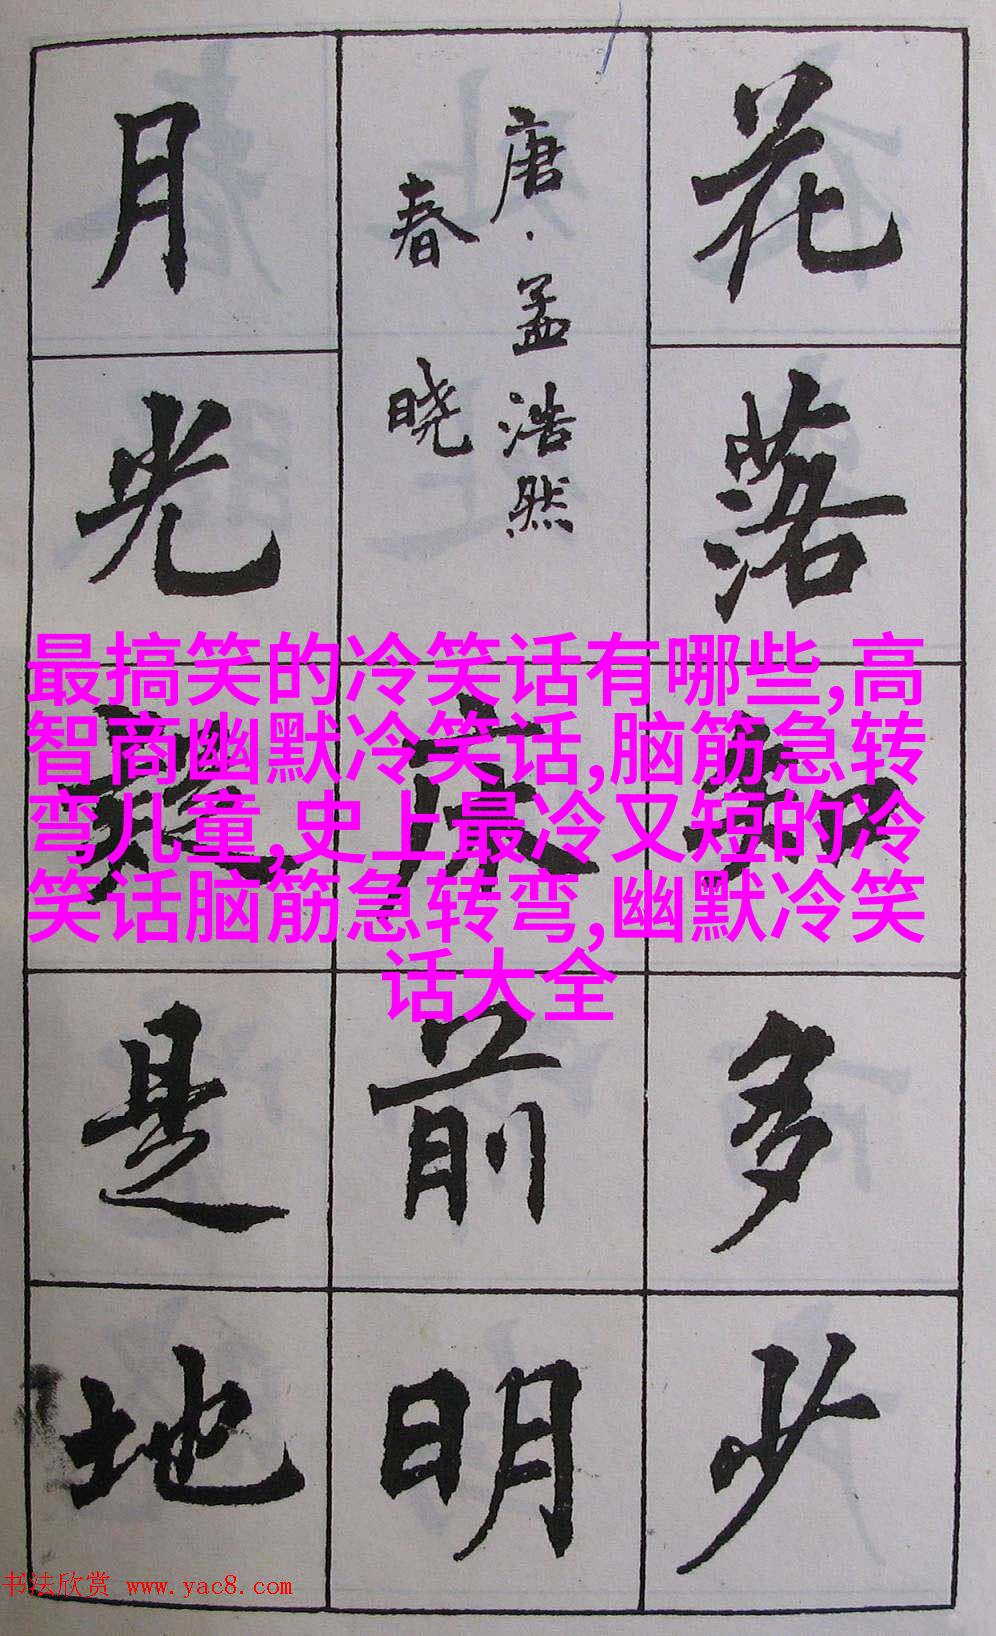 花落知多少
唐·孟浩然
春晓
床前明
月光疑是地
最搞笑的冷笑话有哪些,高
智商幽默冷笑话,脑筋急转
弯儿童,史上最冷又短的冷
笑话脑筋急转弯,幽默冷笑
话大全
书法欣赏 www.yac8.com